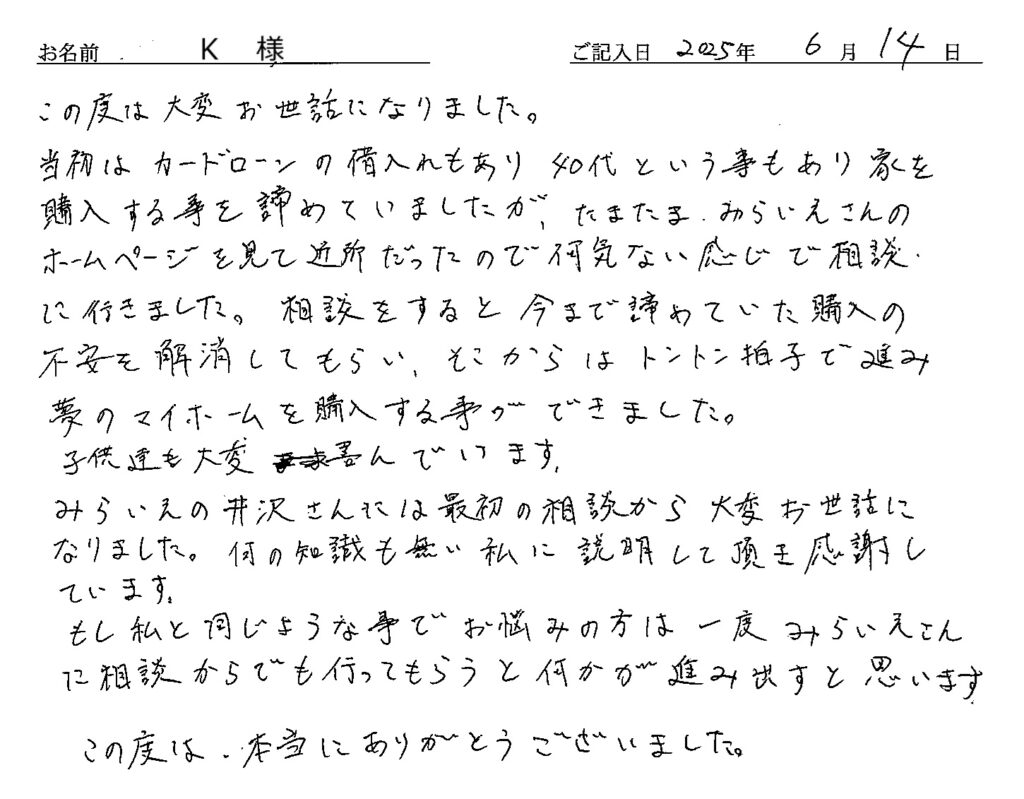 お名前 K 様 ご記入日 2025年 6月 14日
この度は大変お世話になりました。
当初はカードローンの借入れもあり 40代という事もあり 家を
購入する事を諦めていましたが、たまたま、みらいえさんの
ホームページを見て近所だったので何気ない感じで相談
に行きました。相談をすると今まで諦めていた購入の
不安を解消してもらい、そこからはトントン拍子で進み
夢のマイホームを購入する事ができました。
子供達も大変喜んでいます。
みらいえの井沢さんには最初の相談から大変お世話に
なりました。何の知識も無い私に説明して頂き感謝し
ています。
もし私と同じような事でお悩みの方は一度みらいえさん
に相談からでも行ってもらうと何かが進み出すと思います
この度は、本当にありがとうございました。